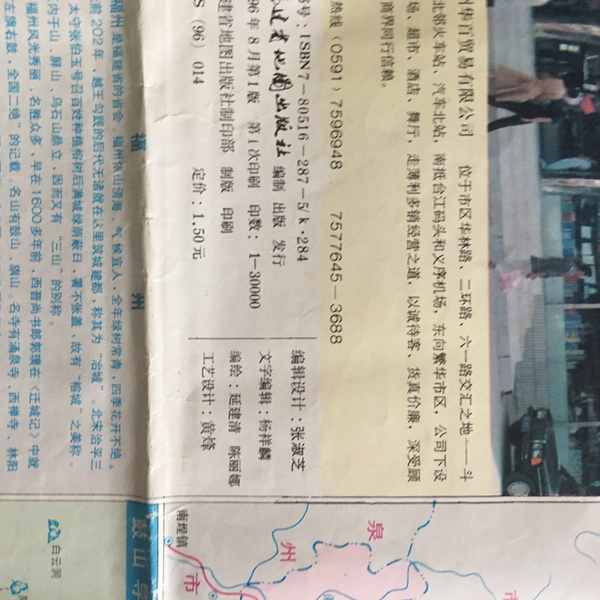 州华百贸易有限公司 位于市区华林路、二环路、六一路交汇之地——斗
北邻火车站、汽车北站，南抵台江码头和义序机场，东向繁华市区，公司下设
场、超市、酒店、舞厅，走薄利多销经营之道，以诚待客、货真价廉，深受顾
商界同行信赖。
热线（0591）7596948 7577645—3688
号：ISBN7-80516-287-5/k·284
省地图出版社 编制 出版 发行
96年8月第1版 第1次印刷 印数：1-30000
建省地图出版社制印部 制版 印刷
S（96）014 定价：1.50元
编辑设计：张淑芝
文字编辑：杨祥麟
编绘：延建清 陈丽娜
工艺设计：黄烽
福 州
福州是福建省的省会。福州依山傍海，气候宜人，全年绿树常青，四季花开不绝。
前202年，越王勾践的后代无诸就在这里筑城建都，称其为“冶城”。北宋治平三
太守张伯玉号召百姓种植榕树后满城绿荫蔽日，暑不张盖，故有“榕城”之美称。
内于山、屏山、乌石山鼎立，因而又有“三山”的别称。
福州风光秀丽，名胜众多，早在1600多年前，西晋尚书郎郭璞在《迁城记》中就
左旗右鼓，全国二绝”的记载。名山有鼓山、旗山，名寺有涌泉寺、西禅寺、林阳
鼓山导
白云洞
南煌镇
泉
州
市
市